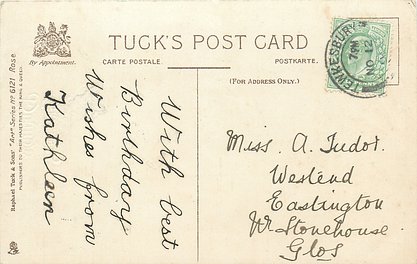 TUCK'S POST CARD
By Appointment.
CARTE POSTALE.
POSTKARTE.
(FOR ADDRESS ONLY.)
TEWKESBURY
NO 12
Raphael Tuck & Sons' "Art" Series No 6121 Rose
PUBLISHERS TO THEIR MAJESTIES THE KING & QUEEN
With best
Birthday
Wishes from
Kathleen
Miss. A. Tudor.
Westend
Eastington
Nr Stonehouse
Glos